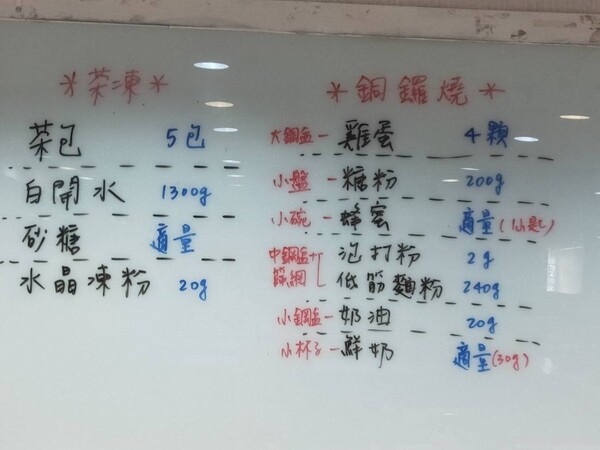 *茶凍*
茶包 5包
白開水 1300g
砂糖 適量
水晶凍粉 20g
*銅鑼燒*
大鋼盆-雞蛋 4顆
小盤-糖粉 200g
小碗-蜂蜜 適量(1小匙)
中鋼盆+ 泡打粉 2g
篩網 低筋麵粉 240g
小鋼盆-奶油 20g
小杯子-鮮奶 適量(30g)